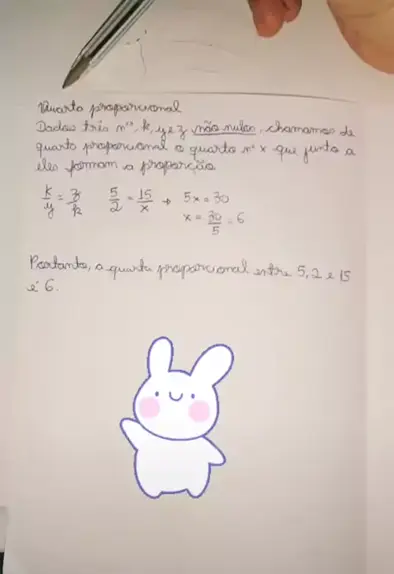 Quarta proporcional
Dados três nºs, k, y e z não nulos, chamamos de
quarta proporcional o quarto nº x que junto a
eles formam a proporção
k/y = z/k 5/2 = 15/x → 5x = 30
x = 30/5 = 6
Portanto, a quarta proporcional entre 5, 2 e 15
é 6.